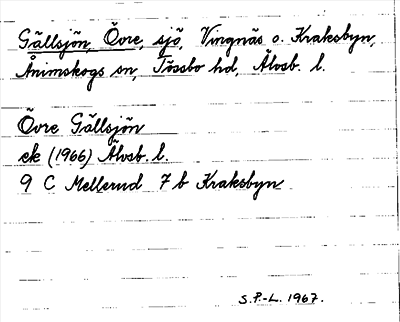 Gällsjön, Övre, sjö, Vingnäs o. Kraksbyn,
Ånimskogs sn, Tössbo hd, Älvsb. l.
Övre Gällsjön
ek (1966) Älvsb. l.
9 C Mellerud 7 b Kraksbyn
S.P.-L. 1967.